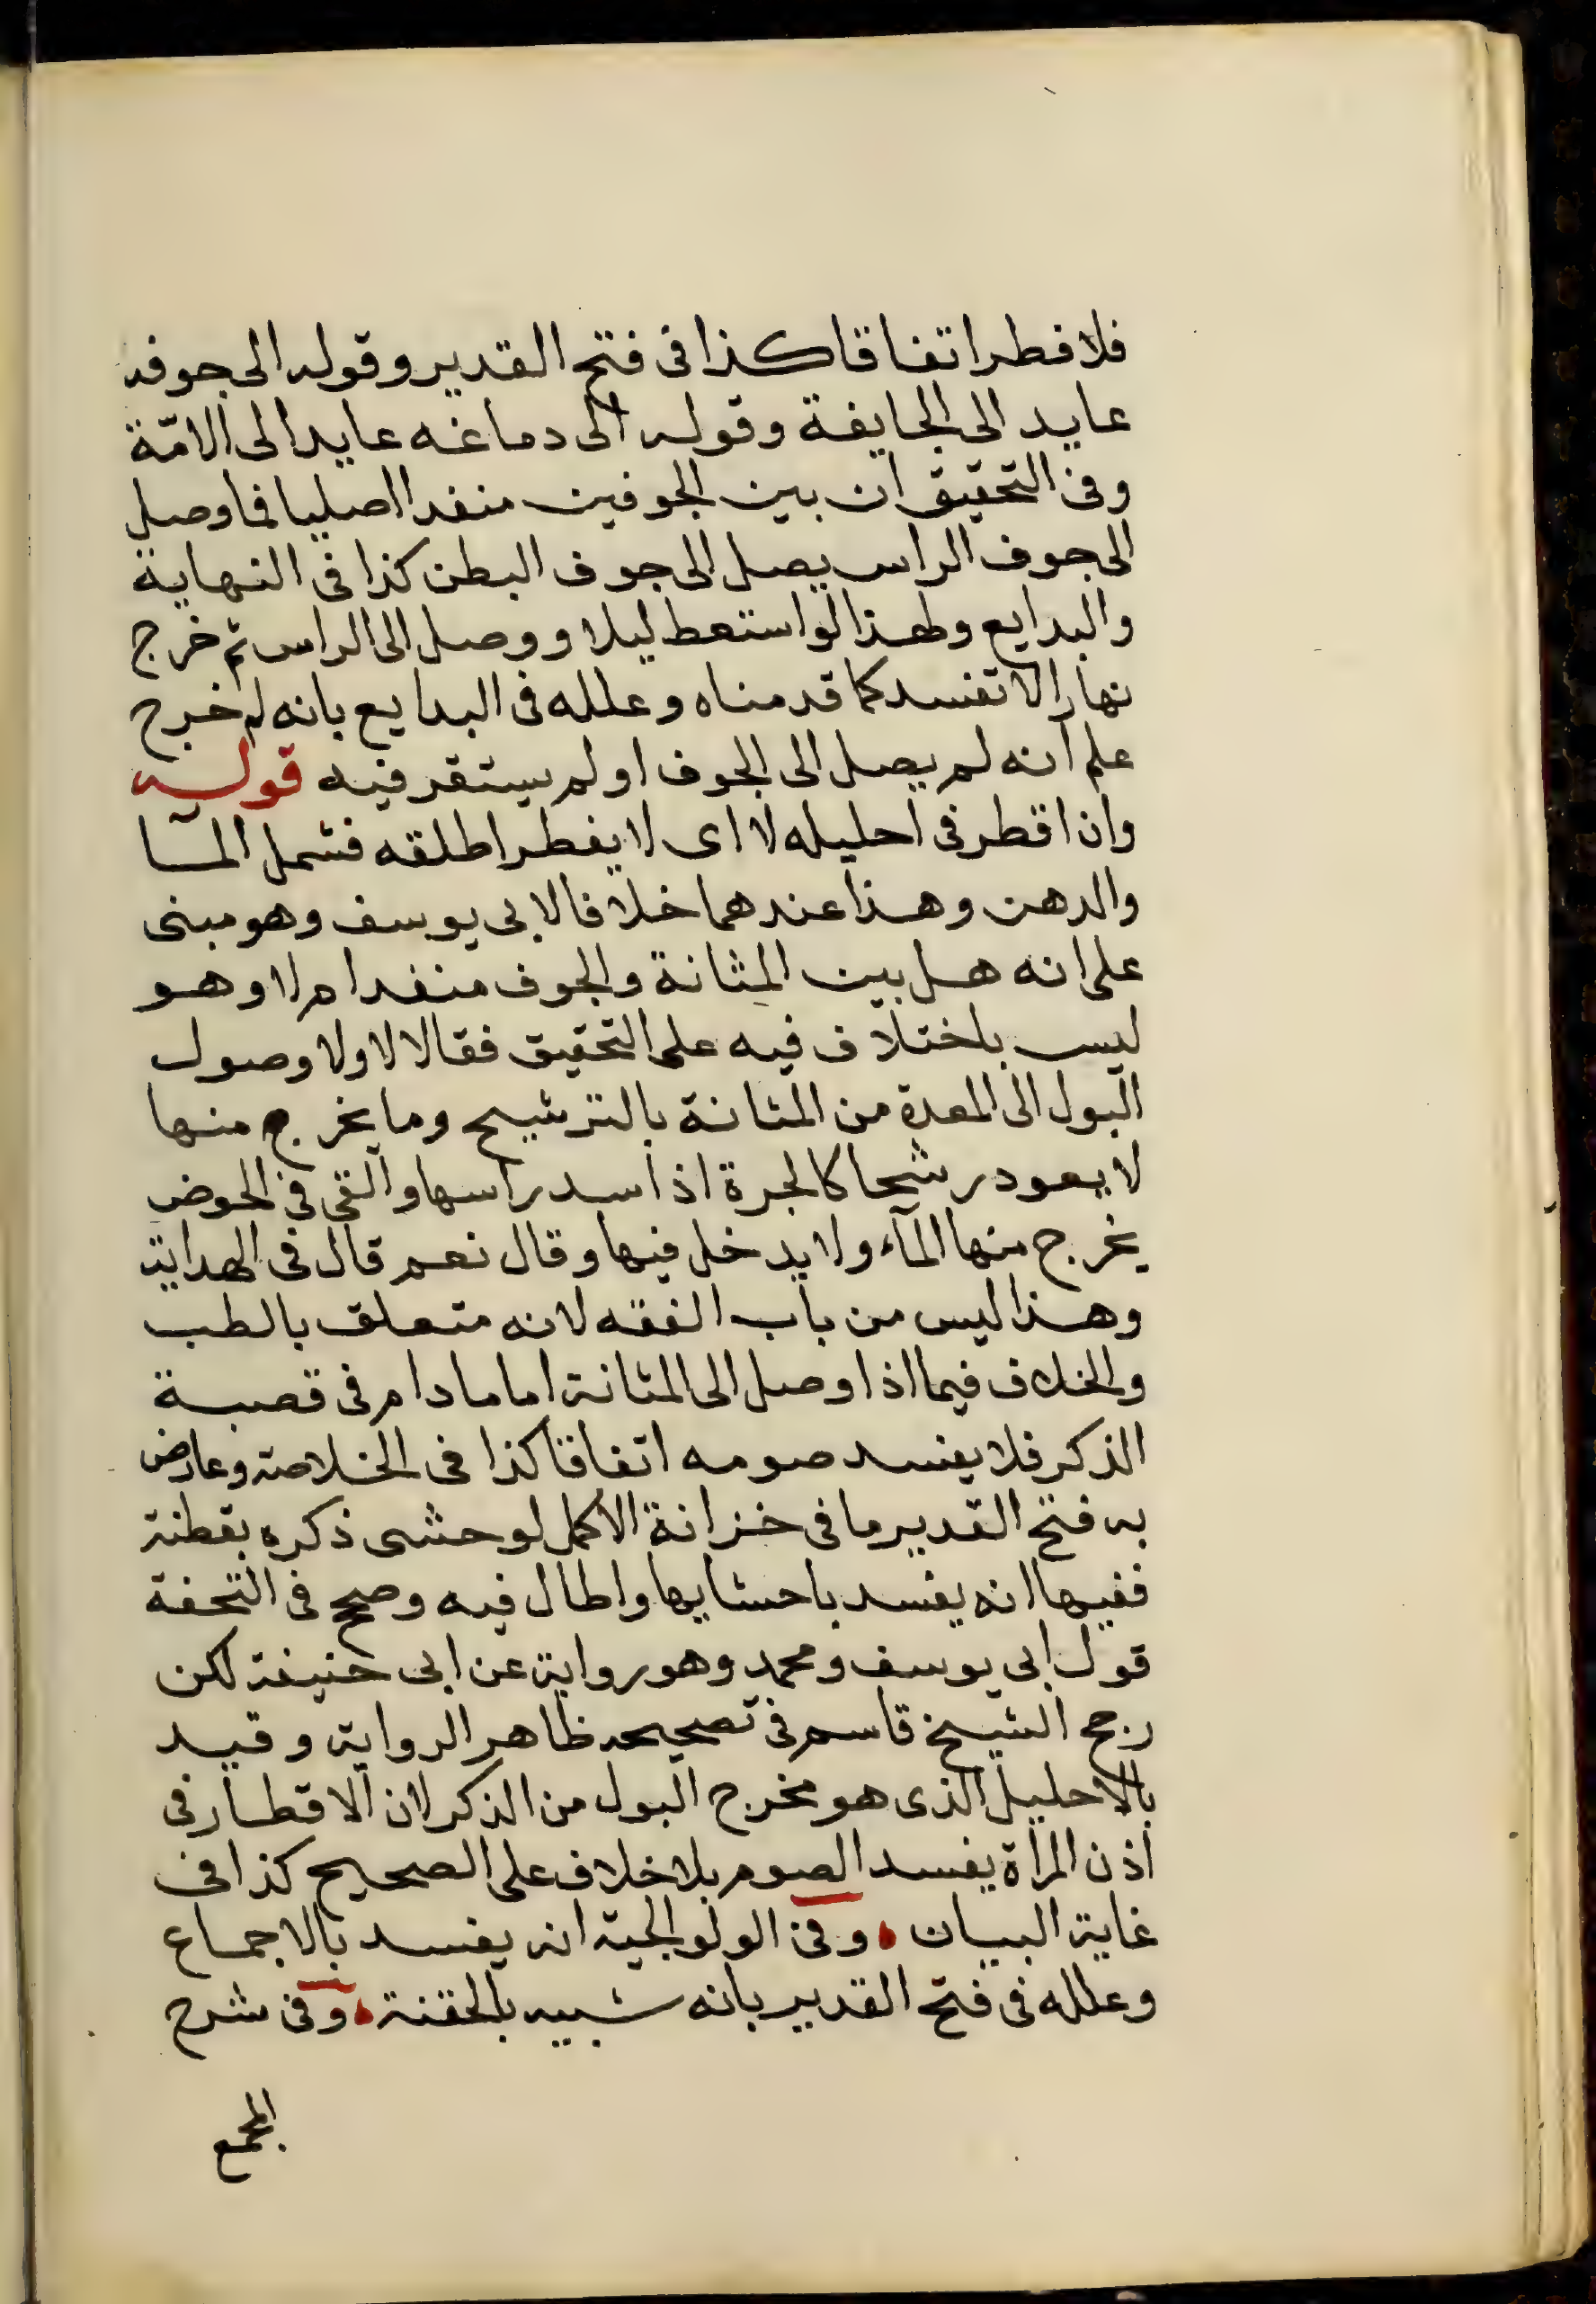 فلا فطر اتفاقا كذا فى فتح القدير وقوله الى جوفه
عايد الى الجايفة وقوله الى دماغه عايد الى الامّة
وفى التحقيق ان بين الجوفين منفدا اصليا فما وصل
الى جوف الراس يصل الى جوف البطن كذا فى النهاية
والبدايع ولهذا لو استعط ليلا ووصل الى الراس ثم خرج
نهارا لا تفسد كما قدمناه وعلله فى البدايع بانه لم خرج
علم انه لم يصل الى الجوف او لم يستقر فيه قوله
وان اقطر فى احليله لا اى لا يفطر اطلقه فشمل المآ
والدهن وهذا عندهما خلافا لابى يوسف وهو مبنى
على انه هل بين المثانة والجوف منفدا م لا وهو
ليس باختلاف فيه على التحقيق فقالا لا ولا وصول
البول الى المعدة من المثانة بالترشيح وما يخرج منها
لا يعود رشحا كالجرة اذا سد راسها والقى فى الحوض
يخرج منها المآء ولا يدخل فيها وقال نعم قال فى الهداية
وهذا ليس من باب الفقه لانه متعلق بالطب
والخلاف فيما اذا وصل الى المثانة اما ما دام فى قصبة
الذكر فلا يفسد صومه اتفاقا كذا فى الخلاصة وعارض
به فتح القدير ما فى خزانة الاكمل لو حشى ذكره بقطنة
ففيها انه يفسد باحشايها واطال فيه وصحح فى التحفة
قول ابى يوسف ومحمد وهو رواية عن ابى حنيفة لكن
رجح الشيخ قاسم فى تصحيحه ظاهر الرواية وقيد
بالاحليل الذى هو مخرج البول من الذكر لان الاقطار فى
اذن المراة يفسد الصوم بلا خلاف على الصحيح كذا فى
غاية البيان وفى الولوالجية انه يفسد بالاجماع
وعلله فى فتح القدير بانه شبيه بالحقنة وفى شرح
المجمع